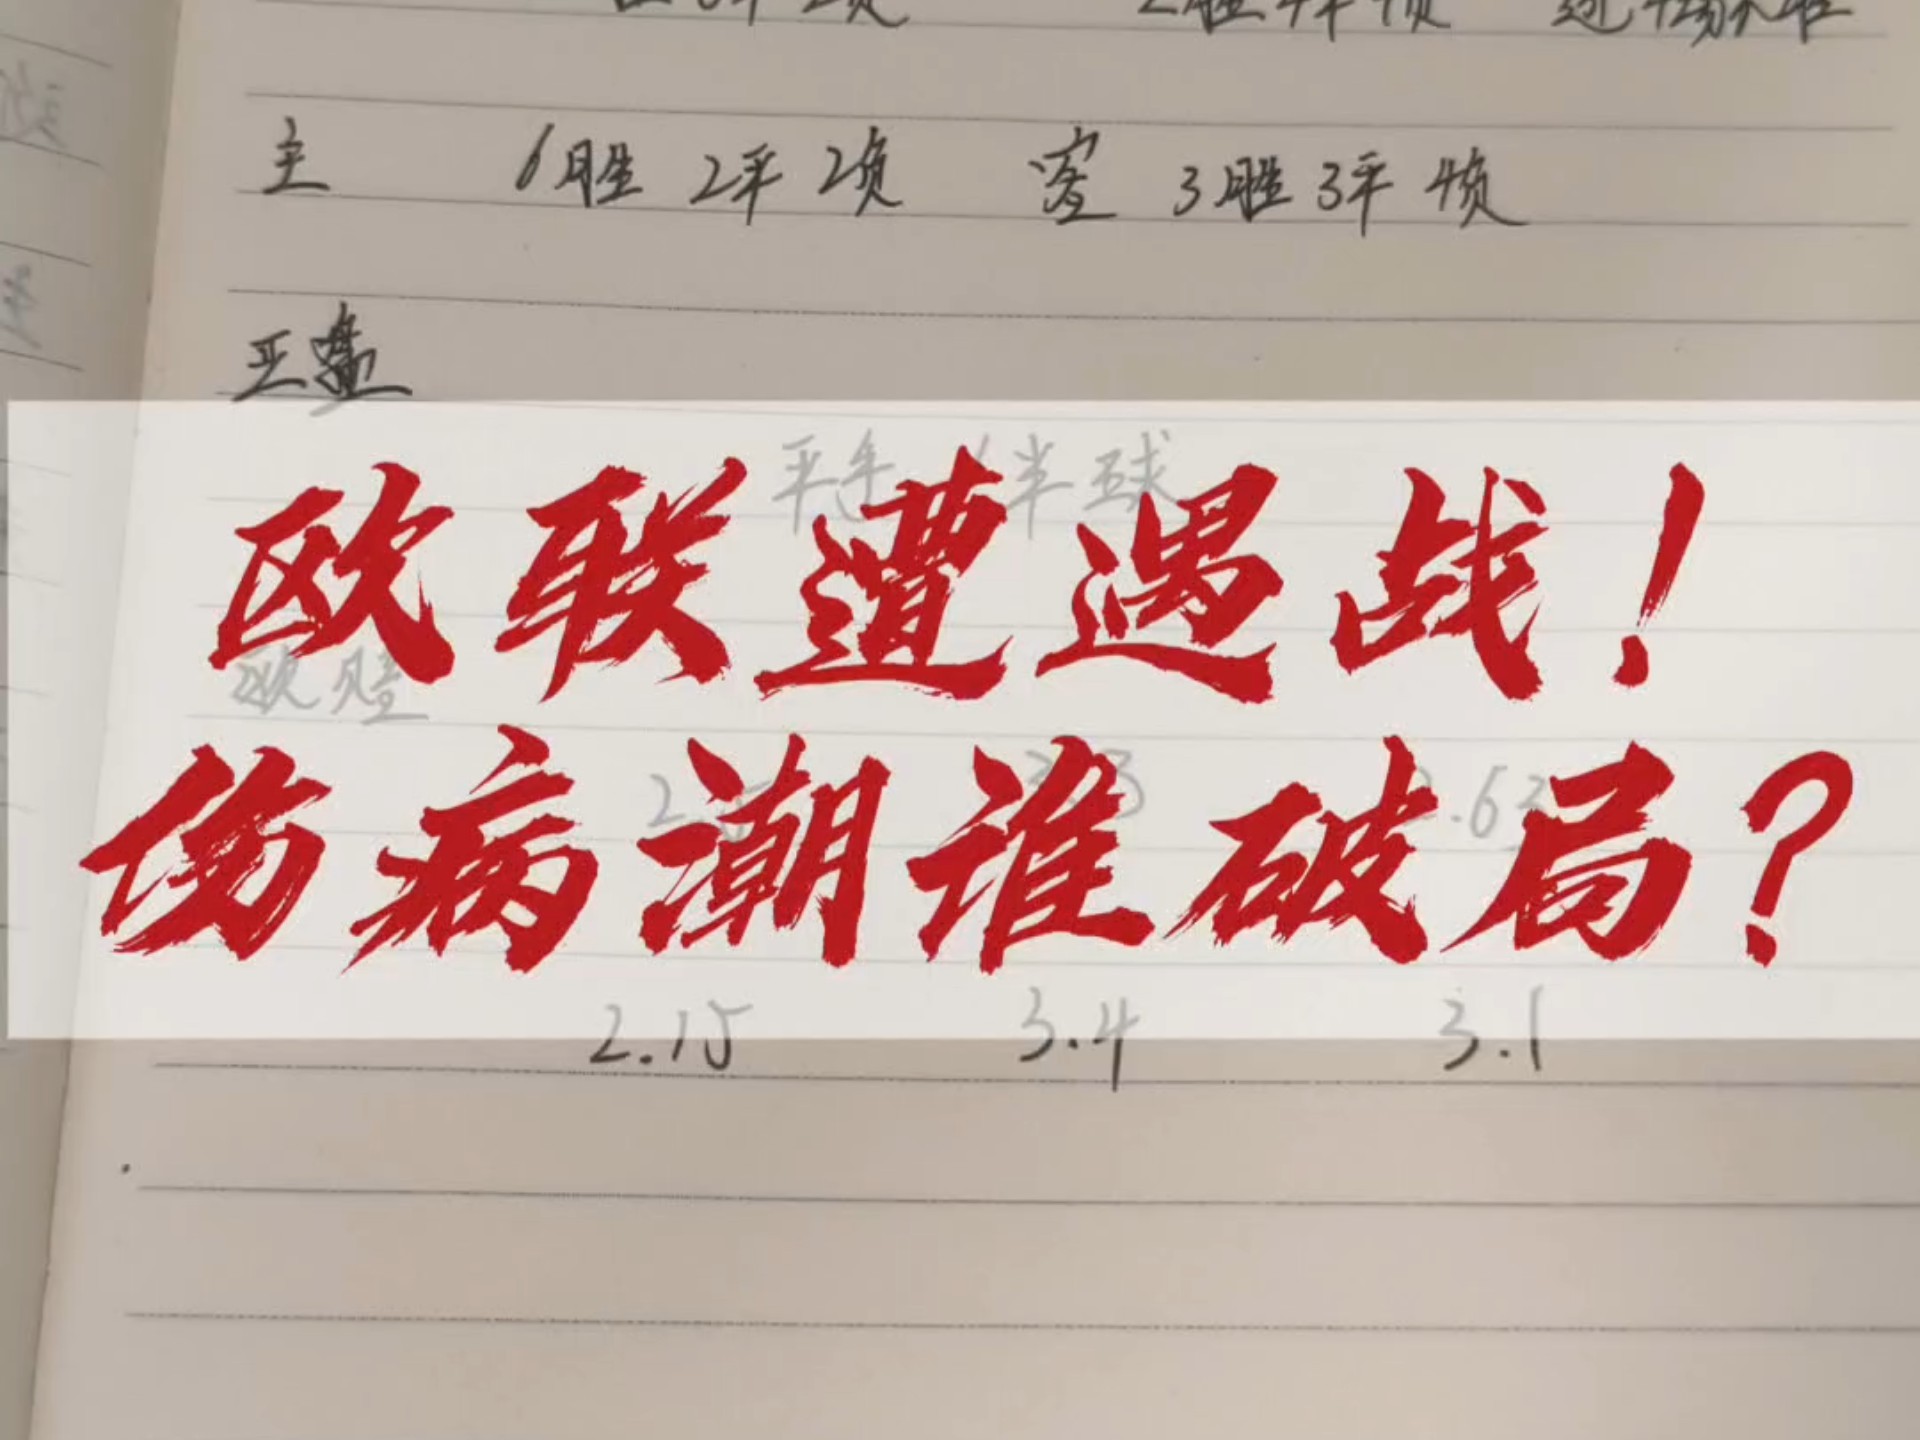 主 6胜 2平 2负 客 3胜 3平 4负
亚盘
平手/半球
欧联遭遇战！
欧赔
伤病潮谁破局？
2.15 3.4 3.1